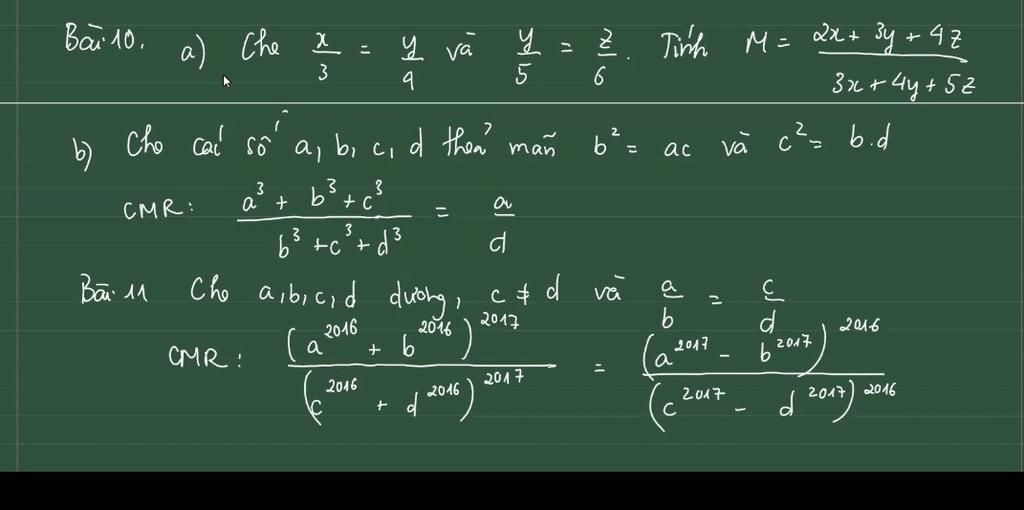 Bài 10. a) Cho x/3 = y/4 và y/5 = z/6. Tính M = (2x + 3y + 4z)/(3x + 4y + 5z)
b) Cho các số a, b, c, d thoả mãn b² = ac và c² = b.d
CMR: (a³ + b³ + c³)/(b³ + c³ + d³) = a/d
Bài 11 Cho a, b, c, d dương, c ≠ d và a/b = c/d
CMR: (a²⁰¹⁶ + b²⁰¹⁶)²⁰¹⁷/(c²⁰¹⁶ + d²⁰¹⁶)²⁰¹⁷ = (a²⁰¹⁷ - b²⁰¹⁷)²⁰¹⁶/(c²⁰¹⁷ - d²⁰¹⁷)²⁰¹⁶